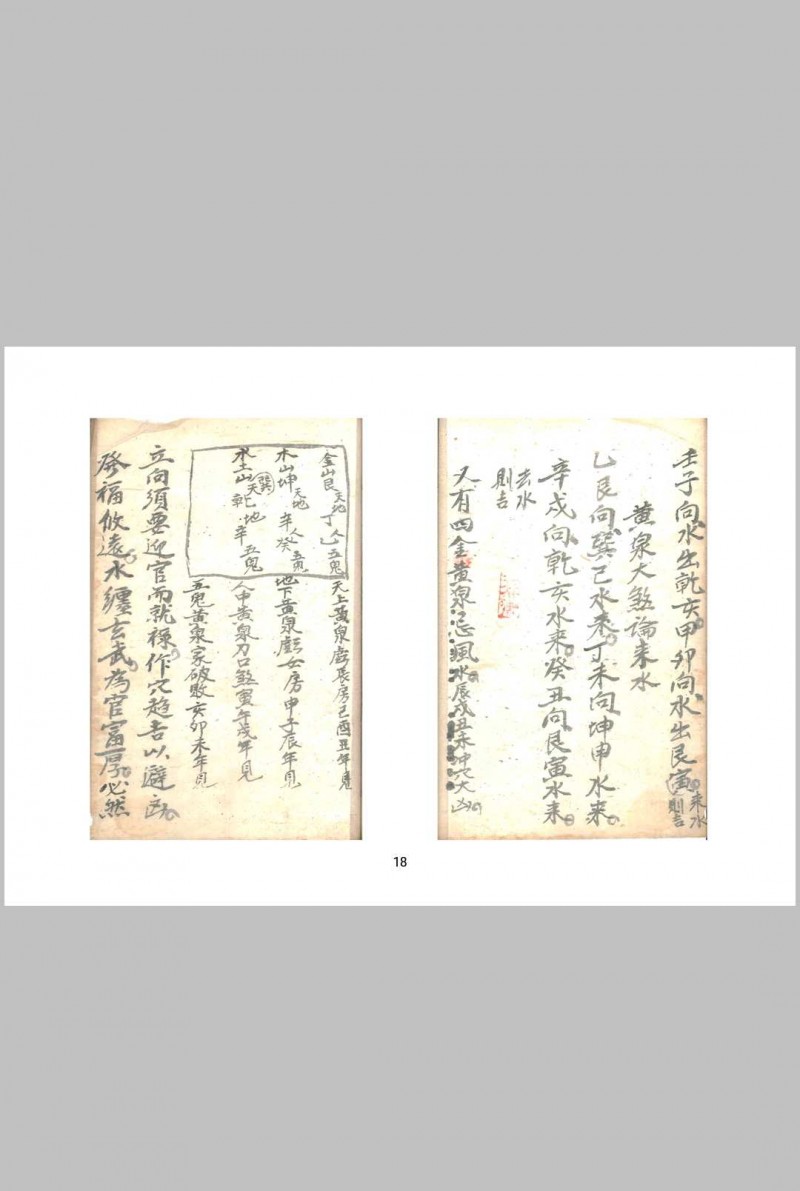 壬子向水出乾亥甲卯向水出艮寅來水則吉
黃泉大煞論來水
乙艮向巽己水来丁未向坤申水来
辛戌向乾亥水来癸丑向艮寅水来
去水則吉
又有四金黃泉忌風水辰戌丑未冲穴大凶
金山艮天地丁人乙五鬼
木山坤天地辛人癸五鬼
水土山巽天乾地辛五鬼
天上黃泉虧長房巳酉丑年見
地下黃泉虧女房申子辰年見
人中黃泉刀口煞寅午戌年見
五鬼黃泉家破敗亥卯未年見
立向須要迎官而就祿作穴趋吉以避凶
發福攸遠水纏玄武為官富厚必然
18